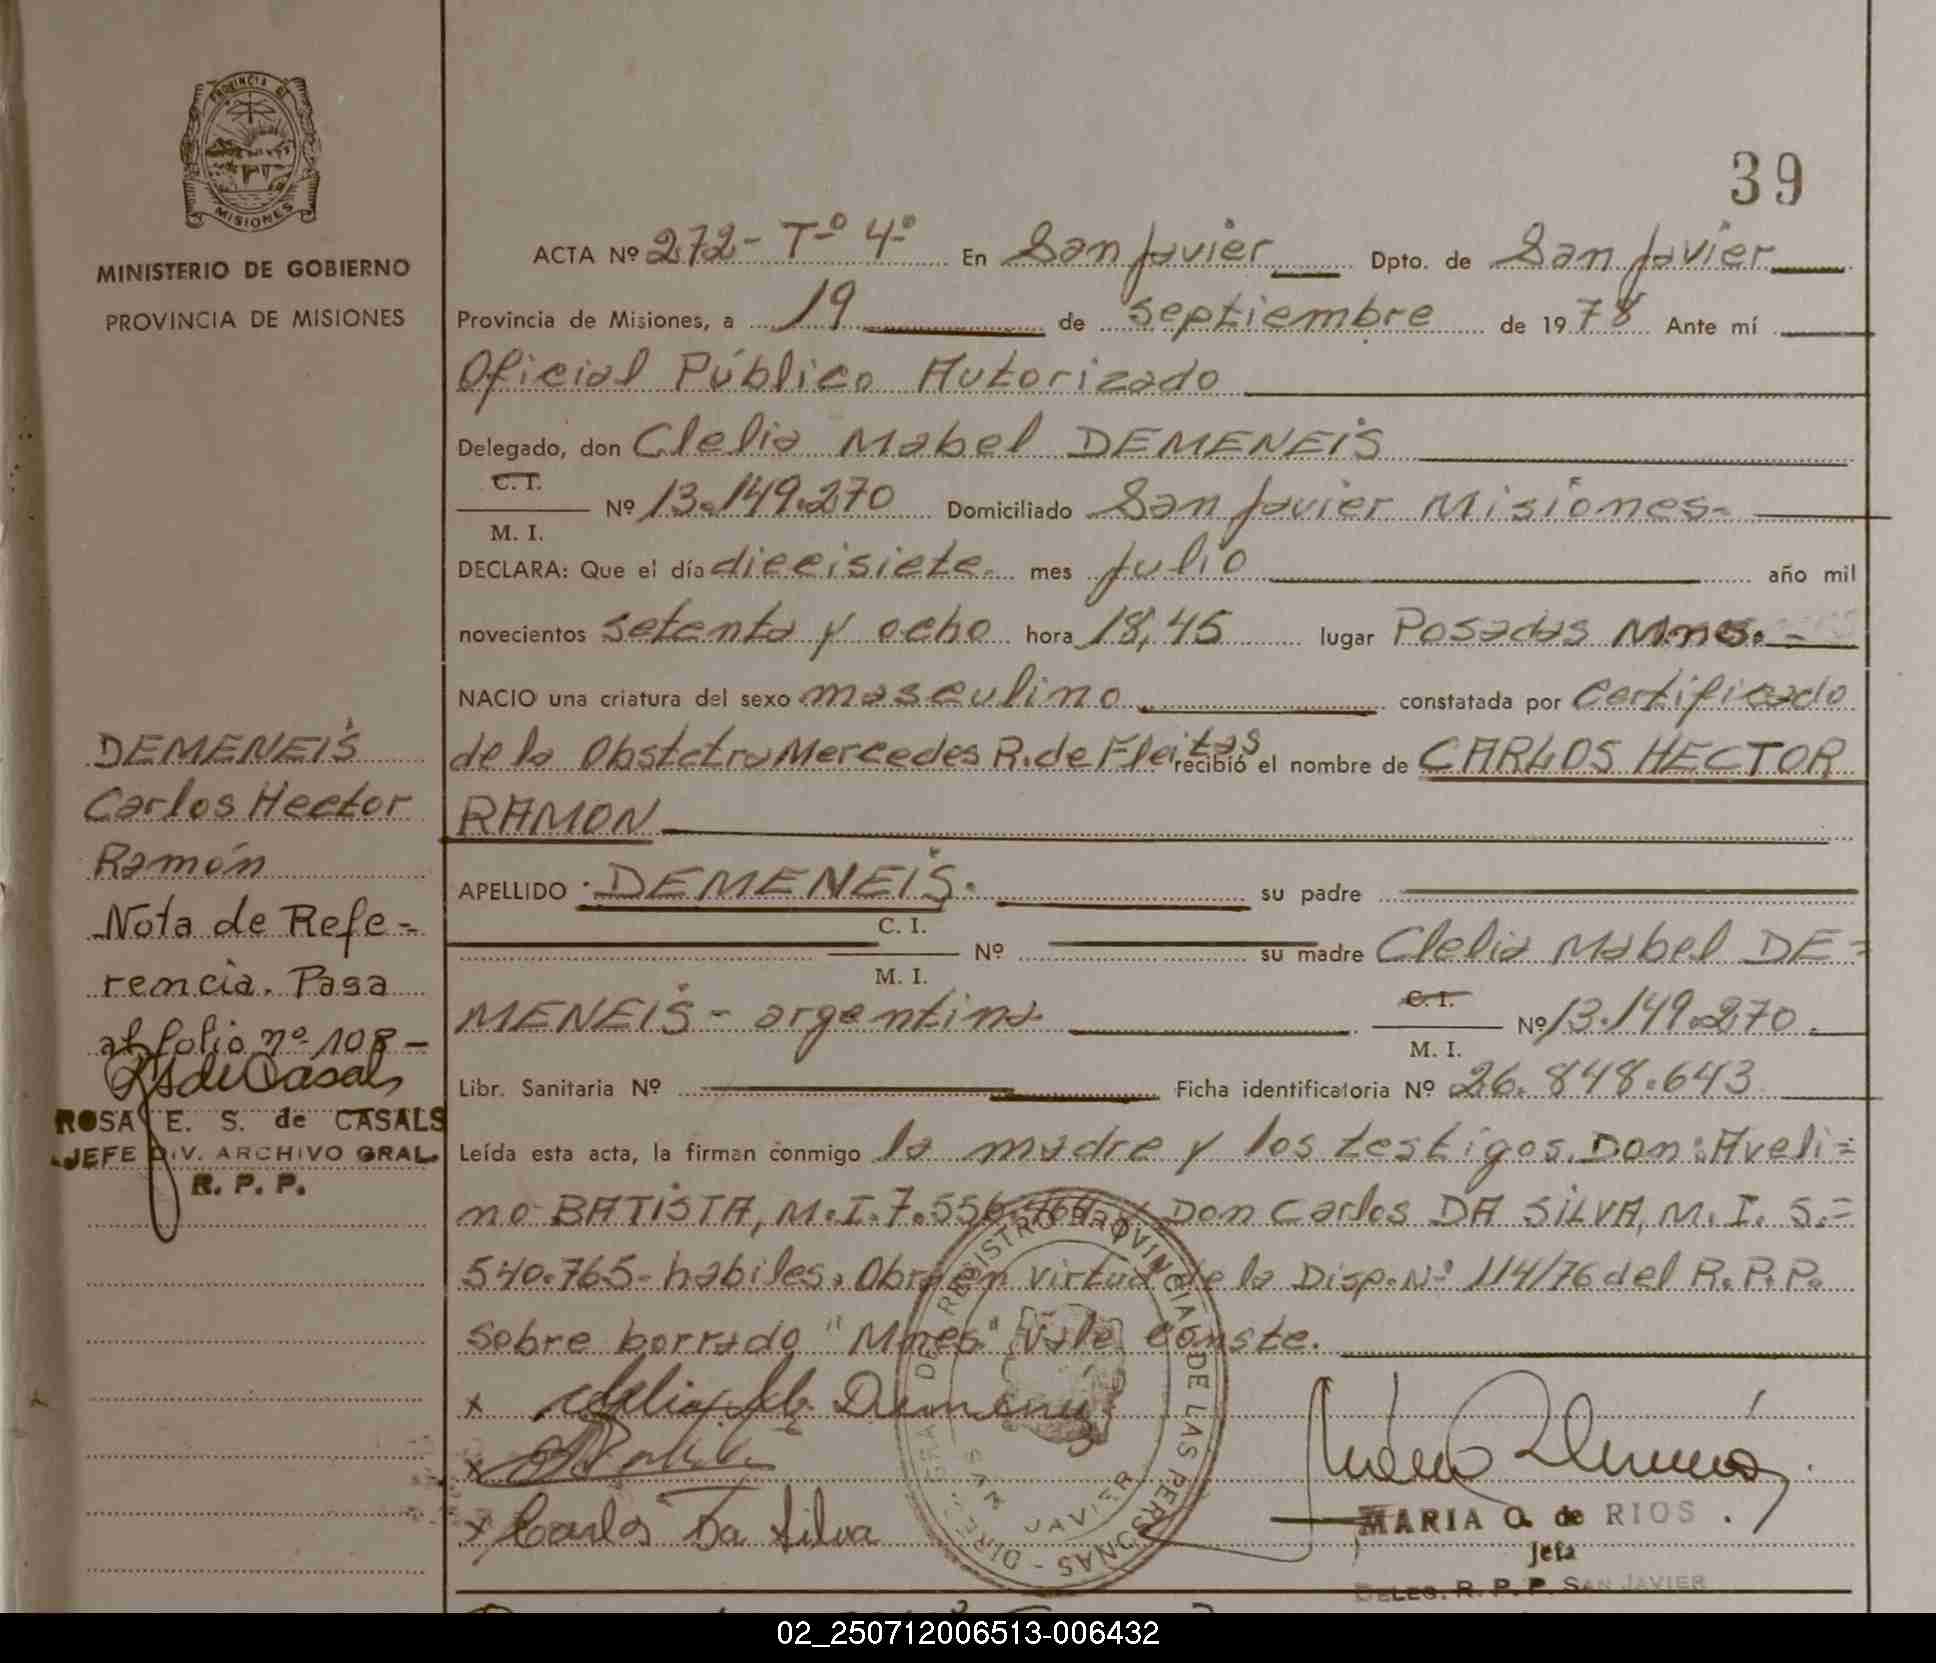 PROVINCIA DE
MISIONES
MINISTERIO DE GOBIERNO
PROVINCIA DE MISIONES
39
ACTA Nº 272- Tº 4º En San Javier Dpto. de San Javier
Provincia de Misiones, a 19 de septiembre de 1978 Ante mí
Oficial Público Autorizado
Delegado, don Clelia Mabel DEMENEIS
C. I.
M. I.
Nº 13.149.270 Domiciliado San Javier Misiones.
DECLARA: Que el día diecisiete mes Julio año mil
novecientos setenta y ocho hora 18,45 lugar Posadas Mnes.-
NACIO una criatura del sexo masculino constatada por Certificado
de la Obstetra Mercedes R. de Fleitas recibió el nombre de CARLOS HECTOR
RAMON
APELLIDO DEMENEIS. su padre
C. I.
M. I.
Nº su madre Clelia Mabel DE=
MENEIS - argentina
C. I.
M. I.
Nº 13.149.270.
Libr. Sanitaria Nº Ficha identificatoria Nº 26.848.643
Leída esta acta, la firman conmigo la madre y los testigos. Don: Aveli=
no BATISTA, M.I. 7.556. y Don Carlos DA SILVA, M. I. 5.=
540.765- habiles. Obra en virtud de la Disp. Nº 114/76 del R.P.P.
Sobre borrado "Mnes" Vale Conste.
Carlos Da Silva
DIREC. GRAL. DEL REGISTRO PROVINCIAL DE LAS PERSONAS
SAN JAVIER
MARIA O. de RIOS
Jefa
DELEG. R. P. P. SAN JAVIER
DEMENEIS
Carlos Hector
Ramón
Nota de Refe-
rencia. Pasa
al folio nº 108-
RSdeCasals
ROSA E. S. de CASALS
JEFE DIV. ARCHIVO GRAL.
R. P. P.
02_250712006513-006432